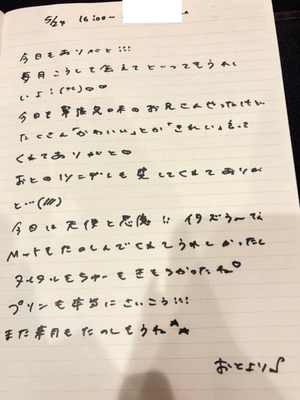 5/27 16:00-
今日もありがと!!!
毎月こうして会えてとーってもうれし
いよ!
今日も 常連
のお兄さんやったけど
たくさん「かわいい」とか「きれい」と言って
くれてありがと♡
おとのリンデレも笑してくれてありが
と…(///)
今日は天使と悪魔!! イタズラな
Mットもたのしんでくれてうれしかったし
タイタルもちゅーもきもちかったね♡
プリンも本当にさいこう!!!
また来月もたのしもうね★★
おとより♪